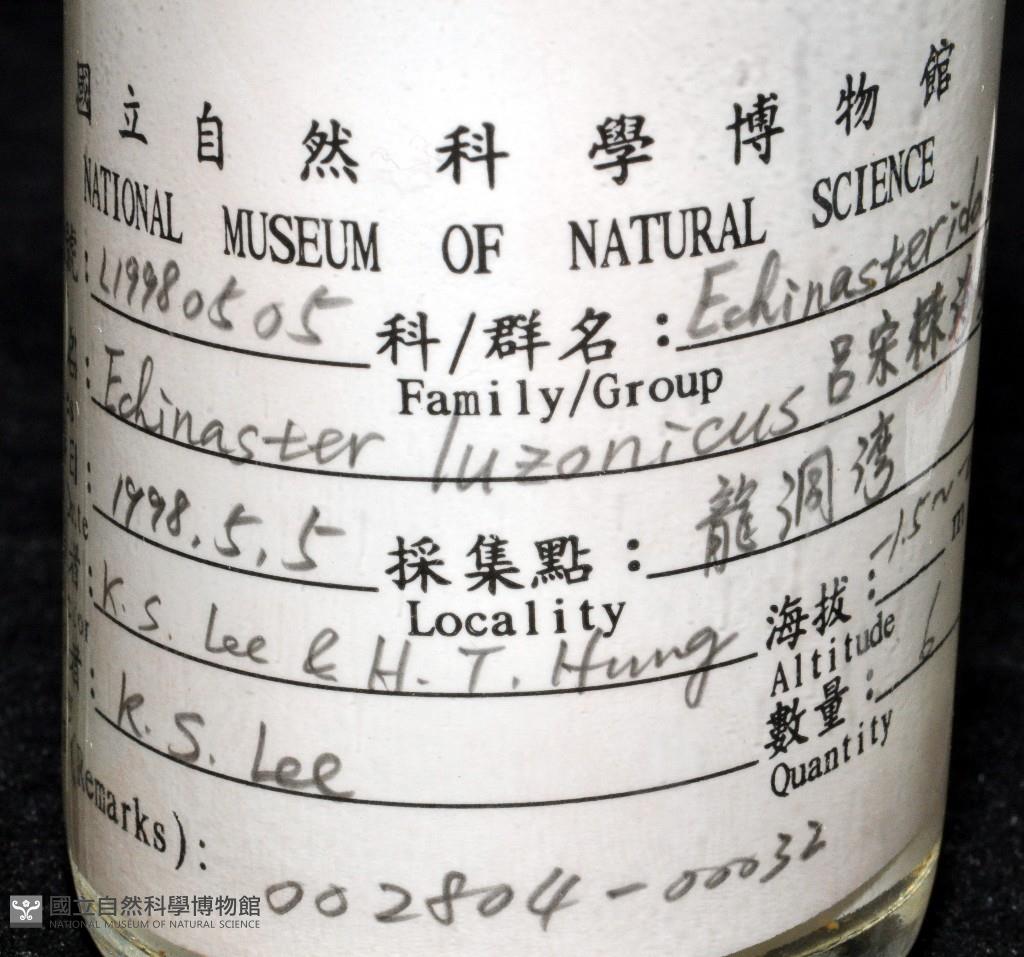 國立自然科學博物館
NATIONAL MUSEUM OF NATURAL SCIENCE
號: L19980505 科/群名: Echinasterida
Family/Group
名: Echinaster luzonicus 呂宋棘
日: 1998.5.5 採集點: 龍洞湾
Locality
者: K.S. Lee & H.T. Hung 海拔: -1.5~ m
Altitude
者: K.S. Lee 數量: 6
Quantity
(Remarks):
002804-00032
國立自然科學博物館
NATIONAL MUSEUM OF NATURAL SCIENCE